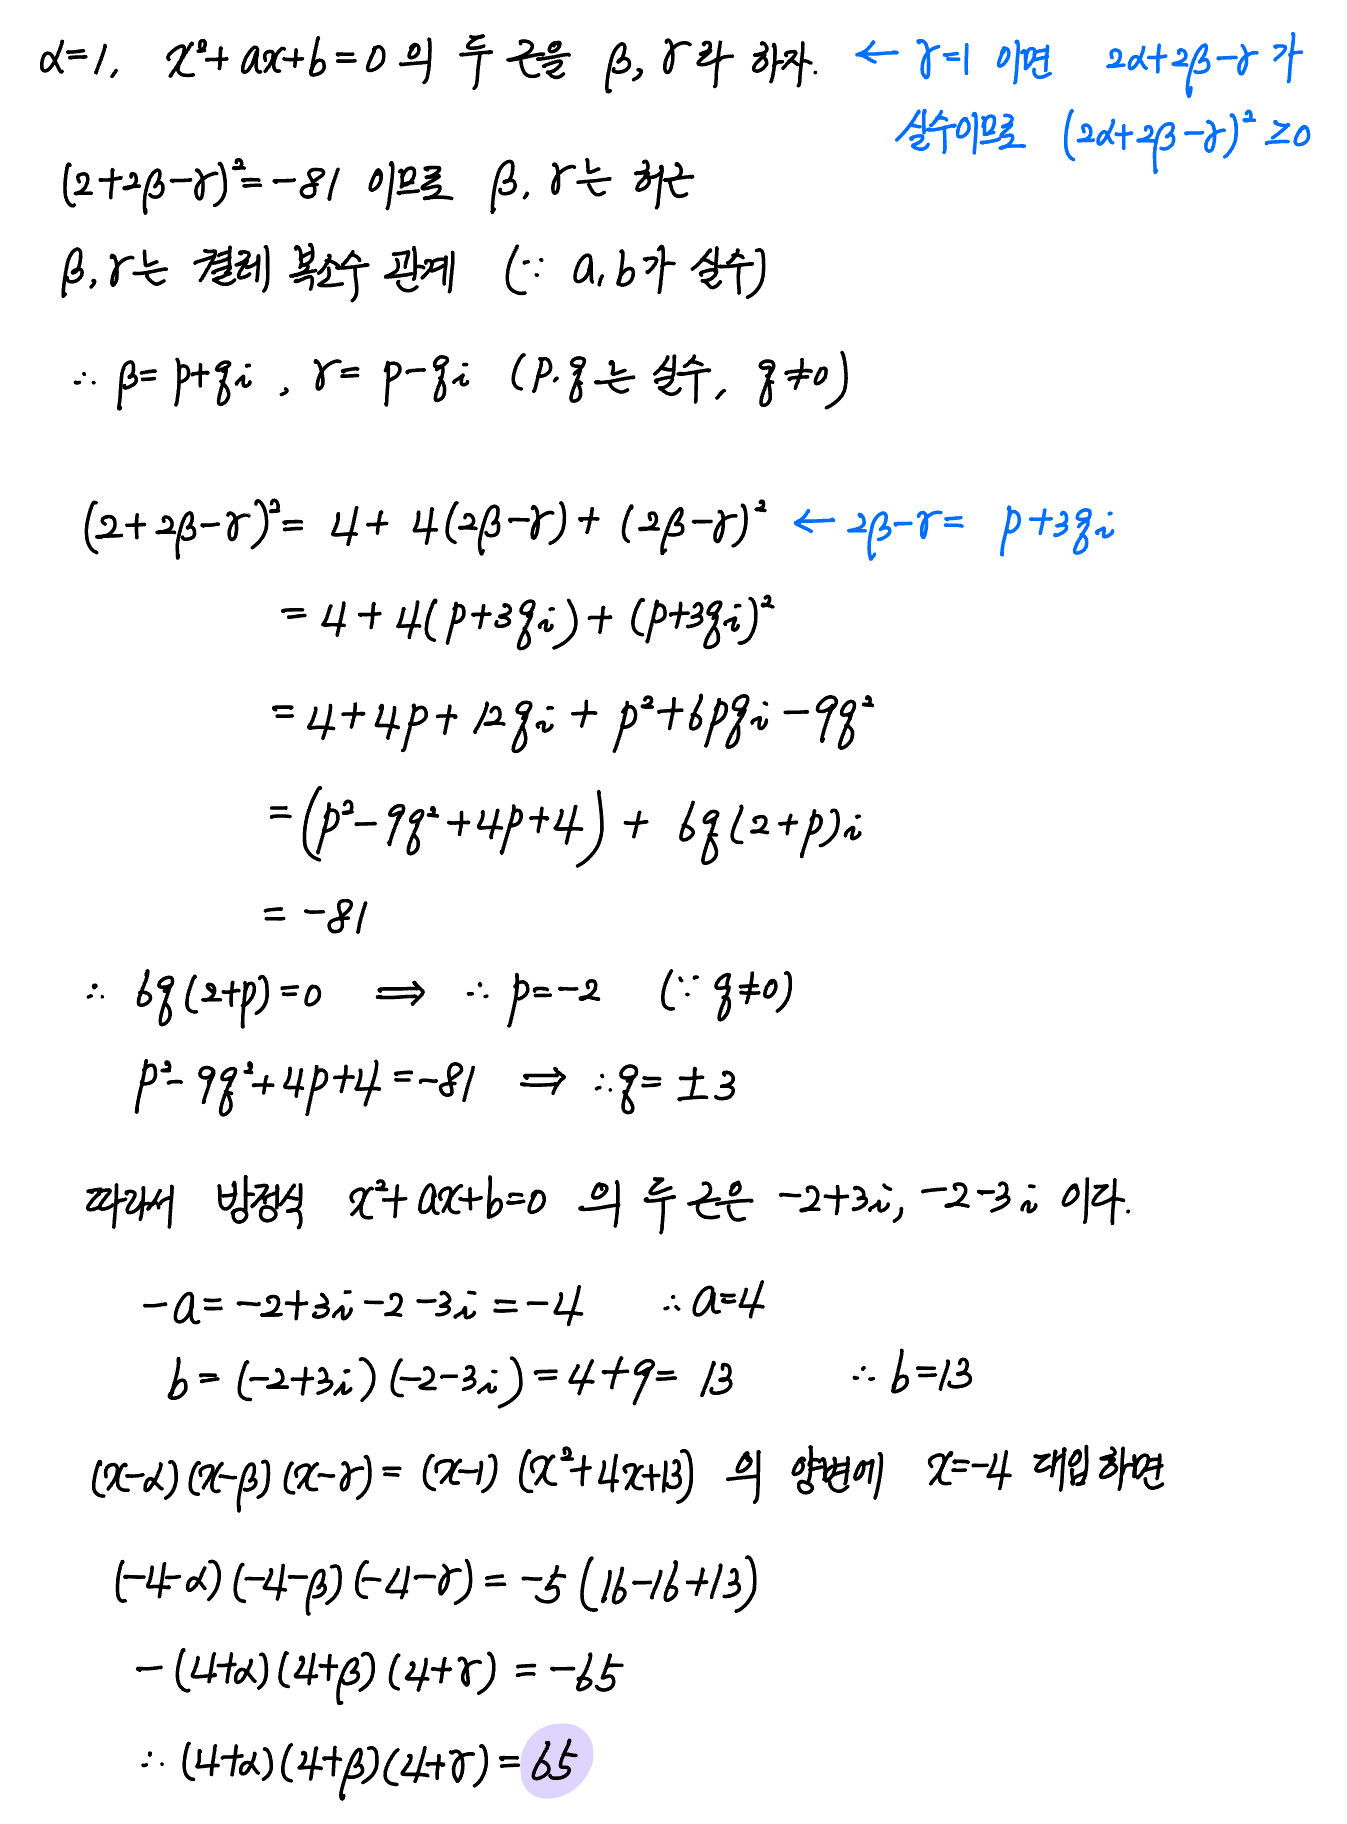 α=1, x²+ax+b=0 의 두 근을 β, γ라 하자. ← γ=1 이면 2α+2β-γ 가
실수이므로 (2α+2β-γ)² ≥0
(2+2β-γ)²=-81 이므로 β, γ는 허근
β, γ는 켤레 복소수 관계 (∵ a, b가 실수)
∴ β= p+qi , γ= p-qi (p, q는 실수, q≠0)
(2+2β-γ)²= 4+ 4(2β-γ)+ (2β-γ)² ← 2β-γ= p+3qi
= 4+4(p+3qi)+(p+3qi)²
=4+4p+12qi+p²+6pqi-9q²
=(p²-9q²+4p+4)+6q(2+p)i
= -81
∴ 6q(2+p)=0 ⟹ ∴ p=-2 (∵ q≠0)
p²-9q²+4p+4=-81 ⟹ ∴q= ±3
따라서 방정식 x²+ax+b=0 의 두 근은 -2+3i, -2-3i 이다.
-a=-2+3i-2-3i=-4 ∴ a=4
b= (-2+3i)(-2-3i)=4+9= 13 ∴ b=13
(x-α)(x-β)(x-γ)= (x-1)(x²+4x+13) 의 양변에 x=-4 대입하면
(-4-α)(-4-β)(-4-γ)= -5(16-16+13)
-(4+α)(4+β)(4+γ) = -65
∴ (4+α)(4+β)(4+γ)=65